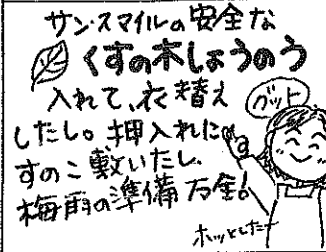 サン・スマイルの安全な
くすの木しょうのう
入れて、衣替え
したし。押入れに
すのこ敷いたし、
梅雨の準備万全!
グット
ホッとした